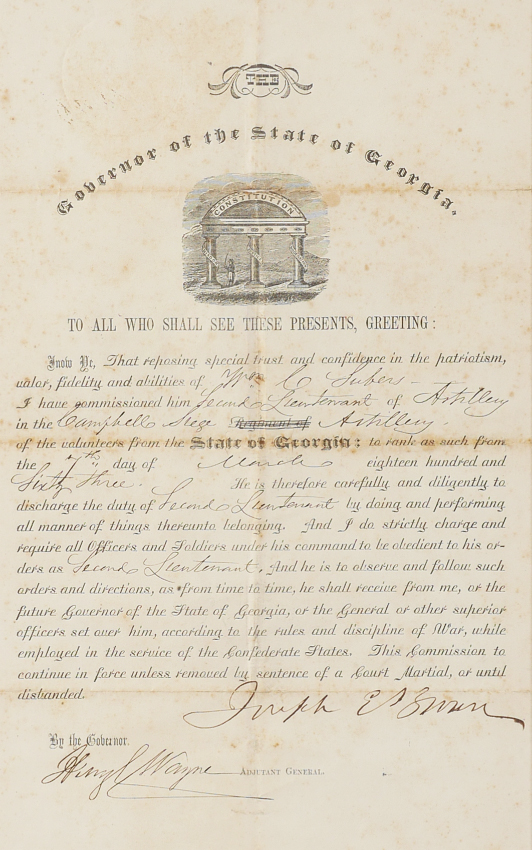 THE
Governor of the State of Georgia,
CONSTITUTION
TO ALL WHO SHALL SEE THESE PRESENTS, GREETING:
Know Ye, That reposing special trust and confidence in the patriotism,
valor, fidelity and abilities of Wm E Subers
I have commissioned him Second Lieutenant of Artillery
in the Campbell Siege Regiment of Artillery.
of the volunteers from the State of Georgia: to rank as such from
the 7th day of March eighteen hundred and
Sixty Three. He is therefore carefully and diligently to
discharge the duty of Second Lieutenant by doing and performing
all manner of things thereunto belonging. And I do strictly charge and
require all Officers and Soldiers under his command to be obedient to his or-
ders as Second Lieutenant. And he is to observe and follow such
orders and directions, as from time to time, he shall receive from me, or the
future Governor of the State of Georgia, or the General or other superior
officers set over him, according to the rules and discipline of War, while
employed in the service of the Confederate States. This Commission to
continue in force unless removed by sentence of a Court Martial, or until
disbanded.
Joseph E Brown
By the Governor.
Henry C Wayne ADJUTANT GENERAL.